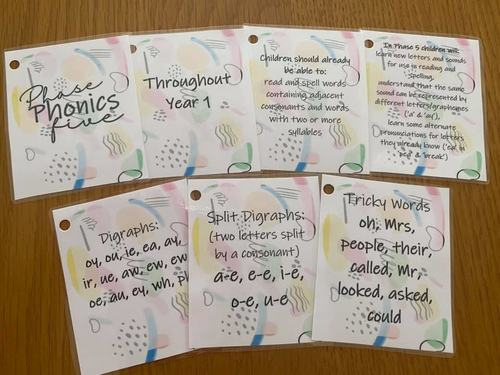 Phase
Phonics
five
Throughout
Year 1
Children should already
be able to:
read and spell words
containing adjacent
consonants and words
with two or more
syllables
In Phase 5 children will:
learn new letters and sounds
for use in reading and
spelling,
understand that the same
sound can be represented by
different letters/graphemes
learn some alternate
pronunciations for letters
they already know ('ea' in
& 'break')
Digraphs:
oy, ou, ie, ea, ay,
ir, ue, aw, ew, ew
oe, au, ey, wh,
Split Digraphs:
(two letters split
by a consonant)
a-e, e-e, i-e,
o-e, u-e
Tricky Words
oh, Mrs,
people, their,
called, Mr,
looked, asked,
could